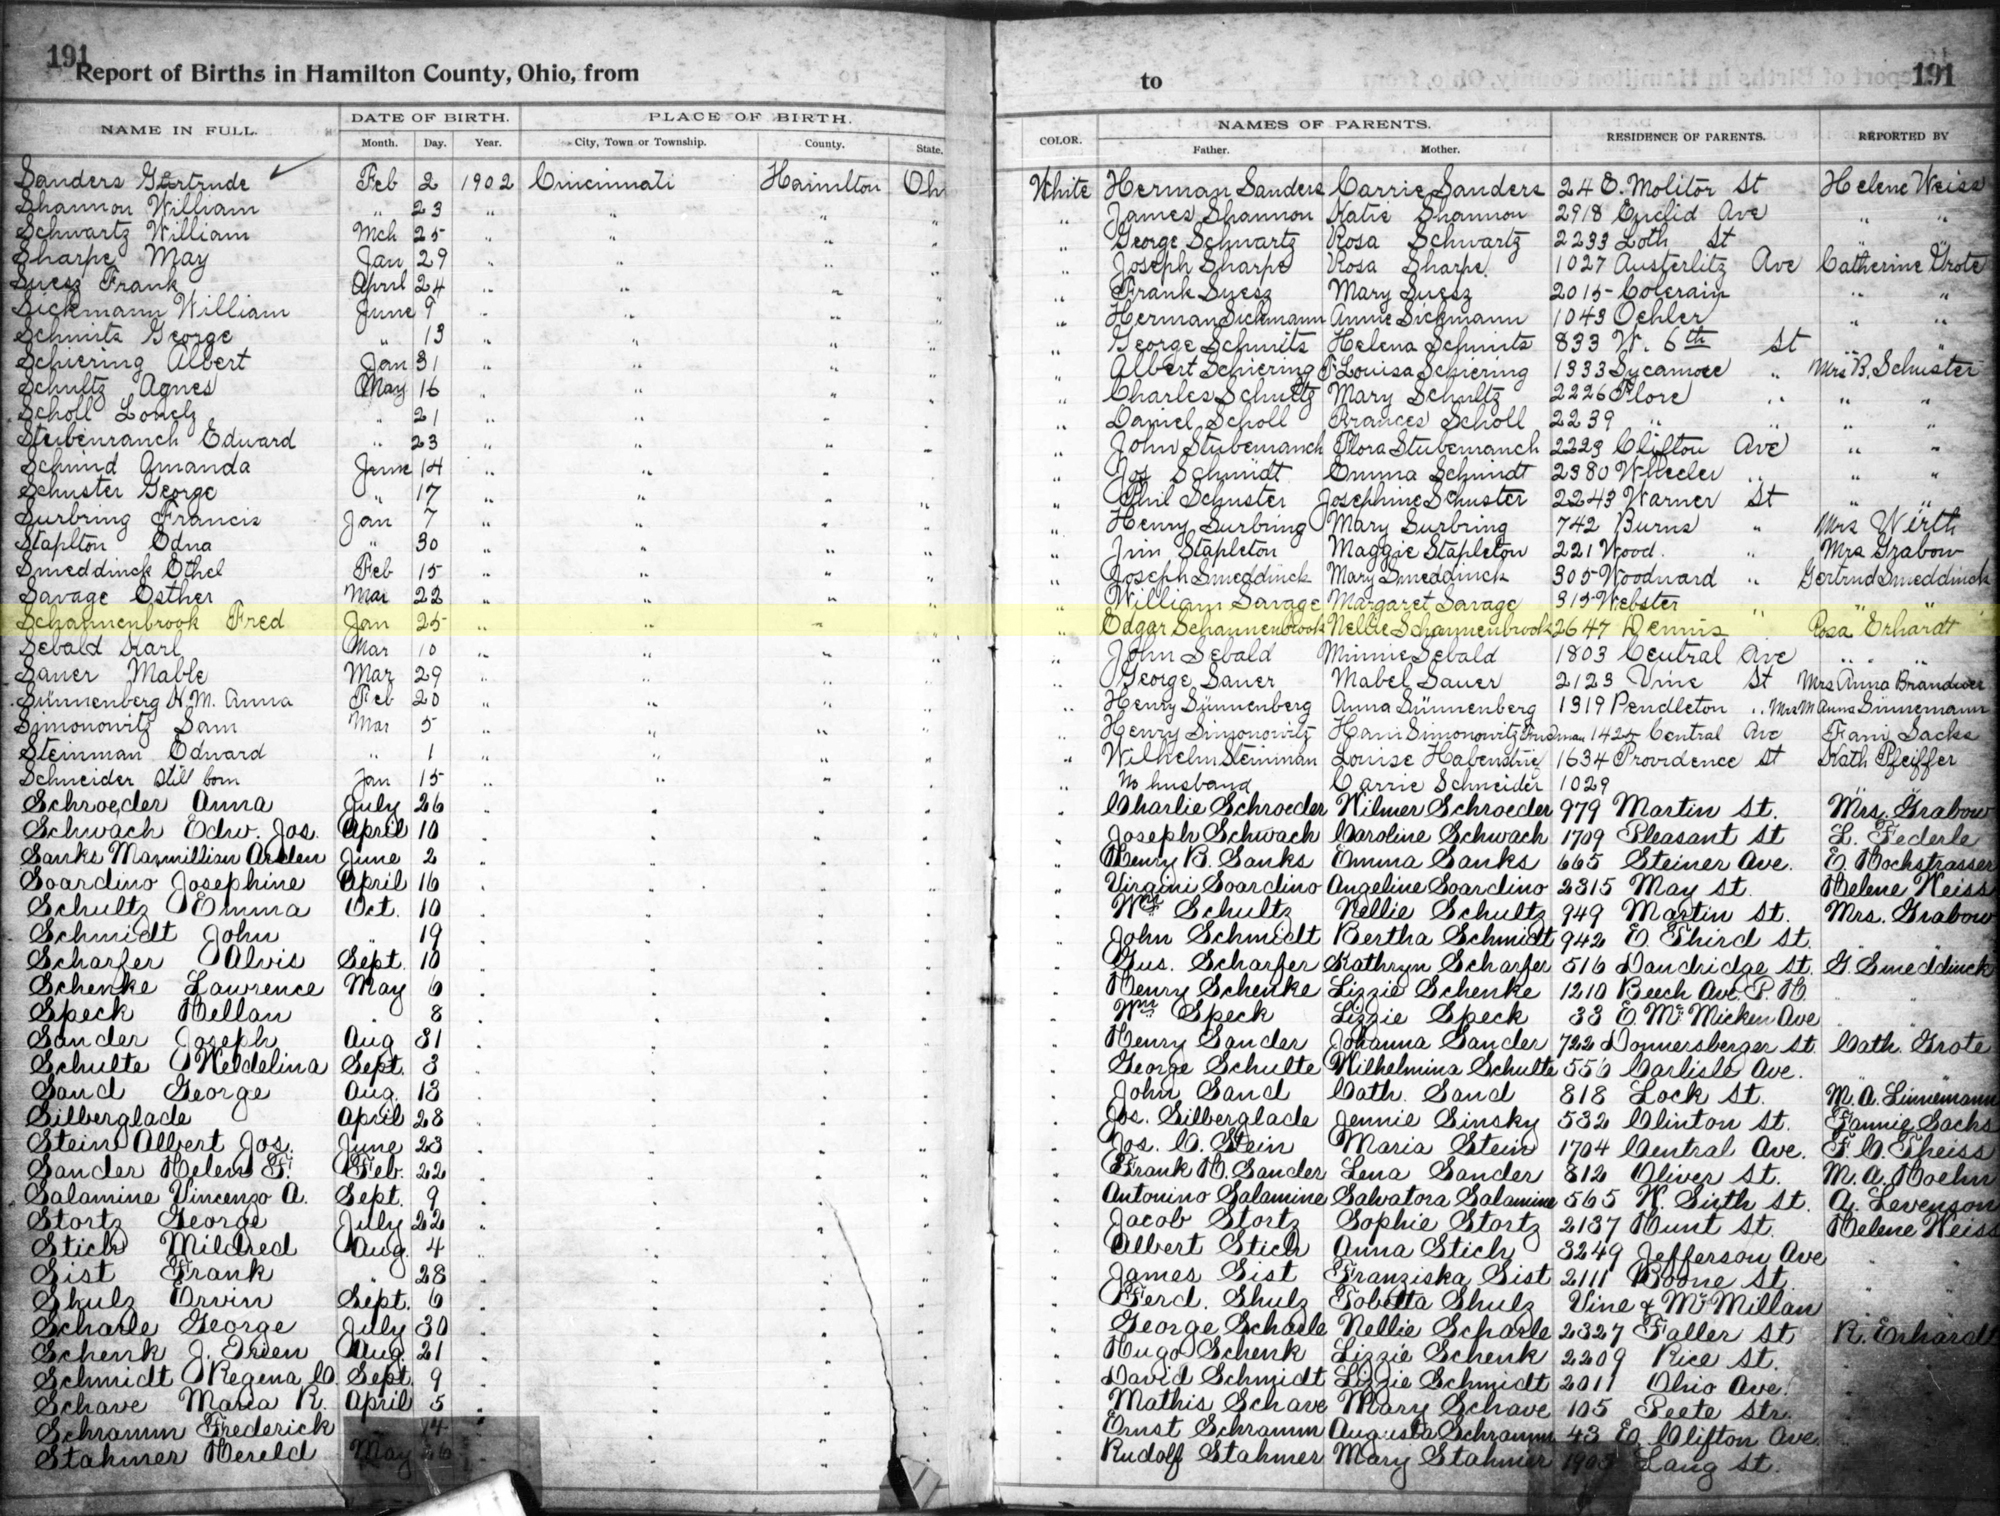 191
Report of Births in Hamilton County, Ohio, from to 191
NAME IN FULL. DATE OF BIRTH. PLACE OF BIRTH. COLOR. NAMES OF PARENTS. RESIDENCE OF PARENTS. REPORTED BY
Month. Day. Year. City, Town or Township. County. State. Father. Mother.
Sanders Gertrude Feb 2 1902 Cincinnati Hamilton Oh White Herman Sanders Carrie Sanders 24 E. Molitor St Helene Weiss
Shannon William " 23 " " " " " James Shannon Katie Shannon 2918 Euclid Ave " "
Schwartz William Mch 25 " " " " " George Schwartz Rosa Schwartz 2233 Loth St " "
Sharpe May Jan 29 " " " " " Joseph Sharpe Rosa Sharpe 1027 Austerlitz Ave Catherine Grote
Suesz Frank April 24 " " " " " Frank Suesz Mary Suesz 2015 Colerain " "
Sickmann William June 9 " " " " " Herman Sickmann Annie Sickmann 1043 Oehler " "
Schmits George " 13 " " " " " George Schmits Helena Schmits 833 W. 6th St
Schiering Albert Jan 31 " " " " " Albert Schiering Louisa Schiering 1333 Sycamore " Mrs B. Schuster
Schultz Agnes May 16 " " " " " Charles Schultz Mary Schultz 2226 Flore " " "
Scholl " 21 " " " " " Daniel Scholl Frances Scholl 2239 " " " "
Stubenranch Edward " 23 " " " " " John Stubemanch Flora Stubemanch 2223 Clifton Ave " "
Schmid Amanda June 14 " " " " " Jos Schmidt Emma Schmidt 2380 Wheeler " " "
Schuster George " 17 " " " " " Phil Schuster Josephine Schuster 2243 Warner St " "
Surbring Francis Jan 7 " " " " " Henry Surbring Mary Surbring 742 Burns " Mrs Wirth
Staplton Edna " 30 " " " " " Jim Stapleton Maggie Stapleton 221 Wood. " Mrs Grabow
Smeddinck Ethel Feb 15 " " " " " Joseph Smeddinck Mary Smeddinck 305 Woodward " Gertrud Smeddinck
Savage Esther Mar 22 " " " " " William Savage Margaret Savage 315 Webster " " "
Schannenbrook Fred Jan 25 " " " " " Edgar Schannenbrook Nellie Schannenbrook 2647 Dennis " Rosa Erhardt
Sebald Karl Mar 10 " " " " " John Sebald Minnie Sebald 1803 Central Ave " "
Sauer Mable Mar 29 " " " " " George Sauer Mabel Sauer 2123 Vine St Mrs Anna Brandner
Sünnenberg H. M. Anna Feb 20 " " " " " Henry Sünnenberg Anna Sünnenberg 1319 Pendleton " Mrs M Anna Sinnemann
Simonowitz Sam Mar 5 " " " " " Henry Simonowitz Simonowitz 1425 Central Ave Fani Sacks
Steinman Edward " 1 " " " " " Wilhelm Steinman Louise 1634 Providence St Kath Pfeiffer
Schneider still born Jan 15 " " " " " No husband Carrie Schneider 1029
Schroeder Anna July 26 " " " " " Charlie Schroeder Wilmer Schroeder 979 Martin St. Mrs. Grabow
Schwach Edw. Jos. April 10 " " " " " Joseph Schwach Caroline Schwach 1709 Pleasant St L. Federle
Sanks Maxmillian Arden June 2 " " " " " Henry B. Sanks Emma Sanks 665 Steiner Ave. E Hochstrasser
Soardino Josephine April 16 " " " " " Virgini Soardino Angeline Soardino 2315 May St. Helene Weiss
Schultz Emma Oct. 10 " " " " " Wm Schultz Nellie Schultz 949 Martin St. Mrs. Grabow
Schmidt John " 19 " " " " " John Schmidt Bertha Schmidt 942 E. Third St.
Scharfer Alvis Sept. 10 " " " " " Gus. Scharfer Kathryn Scharfer 516 Dandridge St. G. Smeddinck
Schenke Lawrence May 6 " " " " " Henry Schenke Lizzie Schenke 1210 Beech Ave. P. H.
Speck Hellan " 8 " " " " " Wm Speck Lizzie Speck 33 E. McMicken Ave
Sander Joseph Aug 31 " " " " " Henry Sander Johanna Sander 722 Donnersberger St. Cath. Grote
Schulte Weldelina Sept. 3 " " " " " George Schulte Wilhelmina Schulte 556 Carlisle Ave. "
Sand George Aug. 13 " " " " " John Sand Cath. Sand 818 Lock St. M. A. Linnemann
Silberglade April 28 " " " " " Jos. Silberglade Jennie Sinsky 532 Clinton St. Fannie Sachs
Stein Albert Jos. June 23 " " " " " Jos. C. Stein Maria Stein 1704 Central Ave. F. C. Theiss
Sander Helen F. Feb. 22 " " " " " Frank H. Sander Lena Sander 812 Oliver St. M. A. Hoehn
Salamine Vincenzo A. Sept. 9 " " " " " Antonino Salamine Salvatora Salamine 565 W. Sixth St. A. Levenson
Stortz George July 22 " " " " " Jacob Stortz Sophie Stortz 2137 Hunt St. Helene Weiss
Stich Mildred Aug. 4 " " " " " Albert Stich Anna Stich 3249 Jefferson Ave
Sist Frank " 28 " " " " " James Sist Franziska Sist 2111 Boone St.
Shulz Ervin Sept. 6 " " " " " Ferd. Shulz Tobetta Shulz Vine & McMillan
Scharle George July 30 " " " " " George Scharle Nellie Scharle 2327 Faller St R. Erhardt
Schenk J. Aug. 21 " " " " " Hugo Schenk Lizzie Schenk 2209 Rice St.
Schmidt Regena C. Sept. 9 " " " " " David Schmidt Lizzie Schmidt 2011 Ohio Ave.
Schave Maria R. April 5 " " " " " Mathis Schave Mary Schave 105 Peete Str.
Schramm Frederick " 14 " " " " " Ernst Schramm Augusta Schramm 43 E. Clifton Ave.
Stahmer Hereld May 26 " " " " " Rudolf Stahmer Mary Stahmer Lang St.